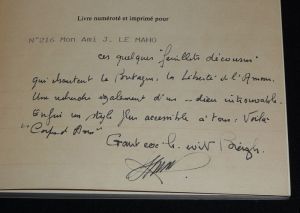 Livre numéroté et imprimé pour
N°216 Mon Ami J. LE MAHO
ces quelques "feuillets décousus"
qui chantent la Bretagne, la Liberté de l'Amour.
Une recherche également d'un -- dieu introuvable.
Enfin un style plus accessible à tous: Voilà
"Corps et Ame"